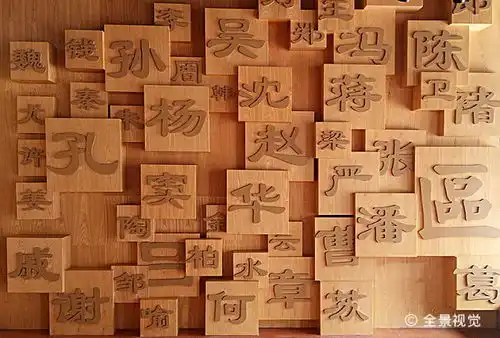 李 吴 郑 王
魏 钱 孙 周 韩 沈 冯 陈
尤 秦 朱 杨 蒋 卫 褚
许 孔 赵 梁 张
姜 窦 华 严 潘 區
陶 金 云 曹
戚 邹 柏 水 章 葛
谢 喻 何 苏
© 全景视觉